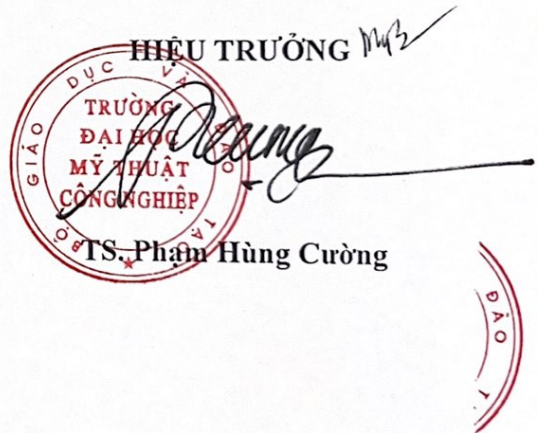 HIỆU TRƯỞNG
BỘ GIÁO DỤC VÀ ĐÀO TẠO
TRƯỜNG
ĐẠI HỌC
MỸ THUẬT
CÔNG NGHIỆP
TS. Phạm Hùng Cường
ĐÀO T